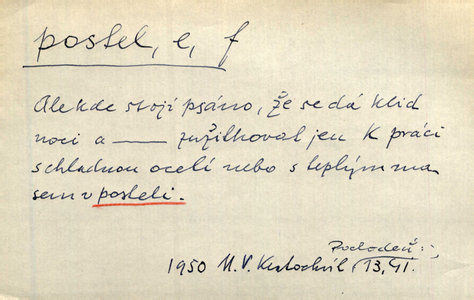 postel, e, f
Ale kde stojí psáno, že se dá klid
noci a —— zužitkoval jen k práci
s chladnou ocelí nebo s teplým ma
sem v posteli.
Pochodeň
1950 M. V. Kratochvíl 13, 91.